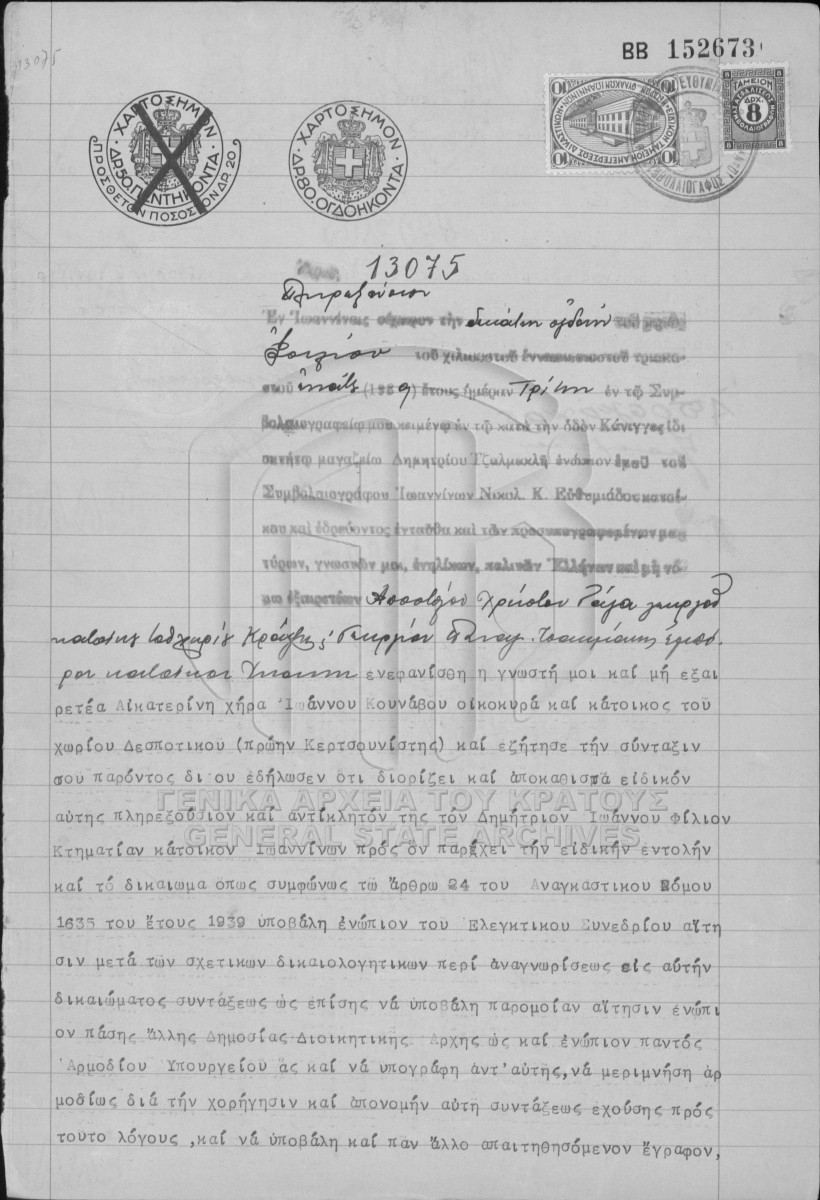 13075
ΒΒ 152673
ΧΑΡΤΟΣΗΜΟΝ
ΔΡ.50.ΠΕΝΤΗΚΟΝΤΑ
ΠΡΟΣΘΕΤΟΝ ΠΟΣΟΣΤΟΝ ΔΡ.20
ΧΑΡΤΟΣΗΜΟΝ
ΔΡ.80.ΟΓΔΟΗΚΟΝΤΑ
10 10
ΤΑΜΕΙΟΝ
ΔΡΧ.
8
Αριθ. 13075
Πληρεξούσιον
Ἐν Ἰωαννίνοις σήμερον τὴν δεκάτην ὀγδόην τοῦ μηνὸς
Ἰουλίου τοῦ χιλιοστοῦ ἐννεακοσιοστοῦ τριακο-
στοῦ ἐνάτου (1939) ἔτους ἡμέραν Τρίτην ἐν τῷ Συμ-
βολαιογραφείῳ μου κειμένῳ ἐν τῷ κατὰ τὴν ὁδὸν Κάνιγγος ἰδι
οκτήτῳ μαγαζείῳ Δημητρίου Τζαλμακλῆ ἐνώπιον ἐμοῦ τοῦ
Συμβολαιογράφου Ἰωαννίνων Νικολ. Κ. Εὐθυμιάδου κατοί-
κου καὶ ἑδρεύοντος ἐνταῦθα καὶ τῶν προσυπογραφομένων μαρ
τύρων, γνωστῶν μοι, ἐνηλίκων, πολιτῶν Ἑλλήνων καὶ μὴ νό-
μῳ ἐξαιρετέων Ἀποστόλου Χρήστου γεωργοῦ
κατοίκου Γεωργίου Παναγ. ἐμπό-
ρου κατοίκου ενεφανίσθη η γνωστή μοι καί μή εξαι
ρετέα Αἰκατερίνη χήρα Ἰωάννου Κουνάβου οἰκοκυρά καί κάτοικος τοῦ
χωρίου Δεσποτικοῦ (πρώην Κερτσουνίστης) καί εζήτησε τήν σύνταξιν
σου παρόντος δι ου εδήλωσεν ότι διορίζει καί ἀποκαθιστᾶ εἰδικόν
αὐτης πληρεξούσιον καί αντίκλητόν της τόν Δημήτριον Ιωάννου Φίλιον
Κτηματίαν κάτοικον Ιωαννίνων πρός ὀν παρέχει τήν εἰδικήν εντολήν
καί τό δικαίωμα όπως συμφώνως τῶ ἄρθρω 24 του Αναγκαστικου Νόμου
1635 του ἔτους 1939 ὑποβάλη ἐνώπιον του Ελεγκτικου Συνεδρίου αἴτη
σιν μετά των σχετικων δικαιολογητικων περί ἀναγνωρίσεως εἰς αὐτήν
δικαιώματος συντάξεως ὡς ἐπίσης νά ὑποβάλη παρομοίαν αἴτησιν ἐνώπι
ον πάσης ἄλλης Δημοσίας Διοικητικης Αρχης ὡς καί ἐνώπιον παντός
Ἁρμοδίου Υπουργείου ἄς καί νά υπογράφη ἀντ'αὐτης,νά μεριμνήση ἁρ
μοδίως διά τήν χορήγησιν καί ἀπονομήν αὐτη συντάξεως εχούσης πρός
τοῦτο λόγους ,καί νά ὑποβάλη καί παν ἄλλο απαιτηθησόμενον ἔγραφον,
ΓΕΝΙΚΑ ΑΡΧΕΙΑ ΤΟΥ ΚΡΑΤΟΥΣ
GENERAL STATE ARCHIVES